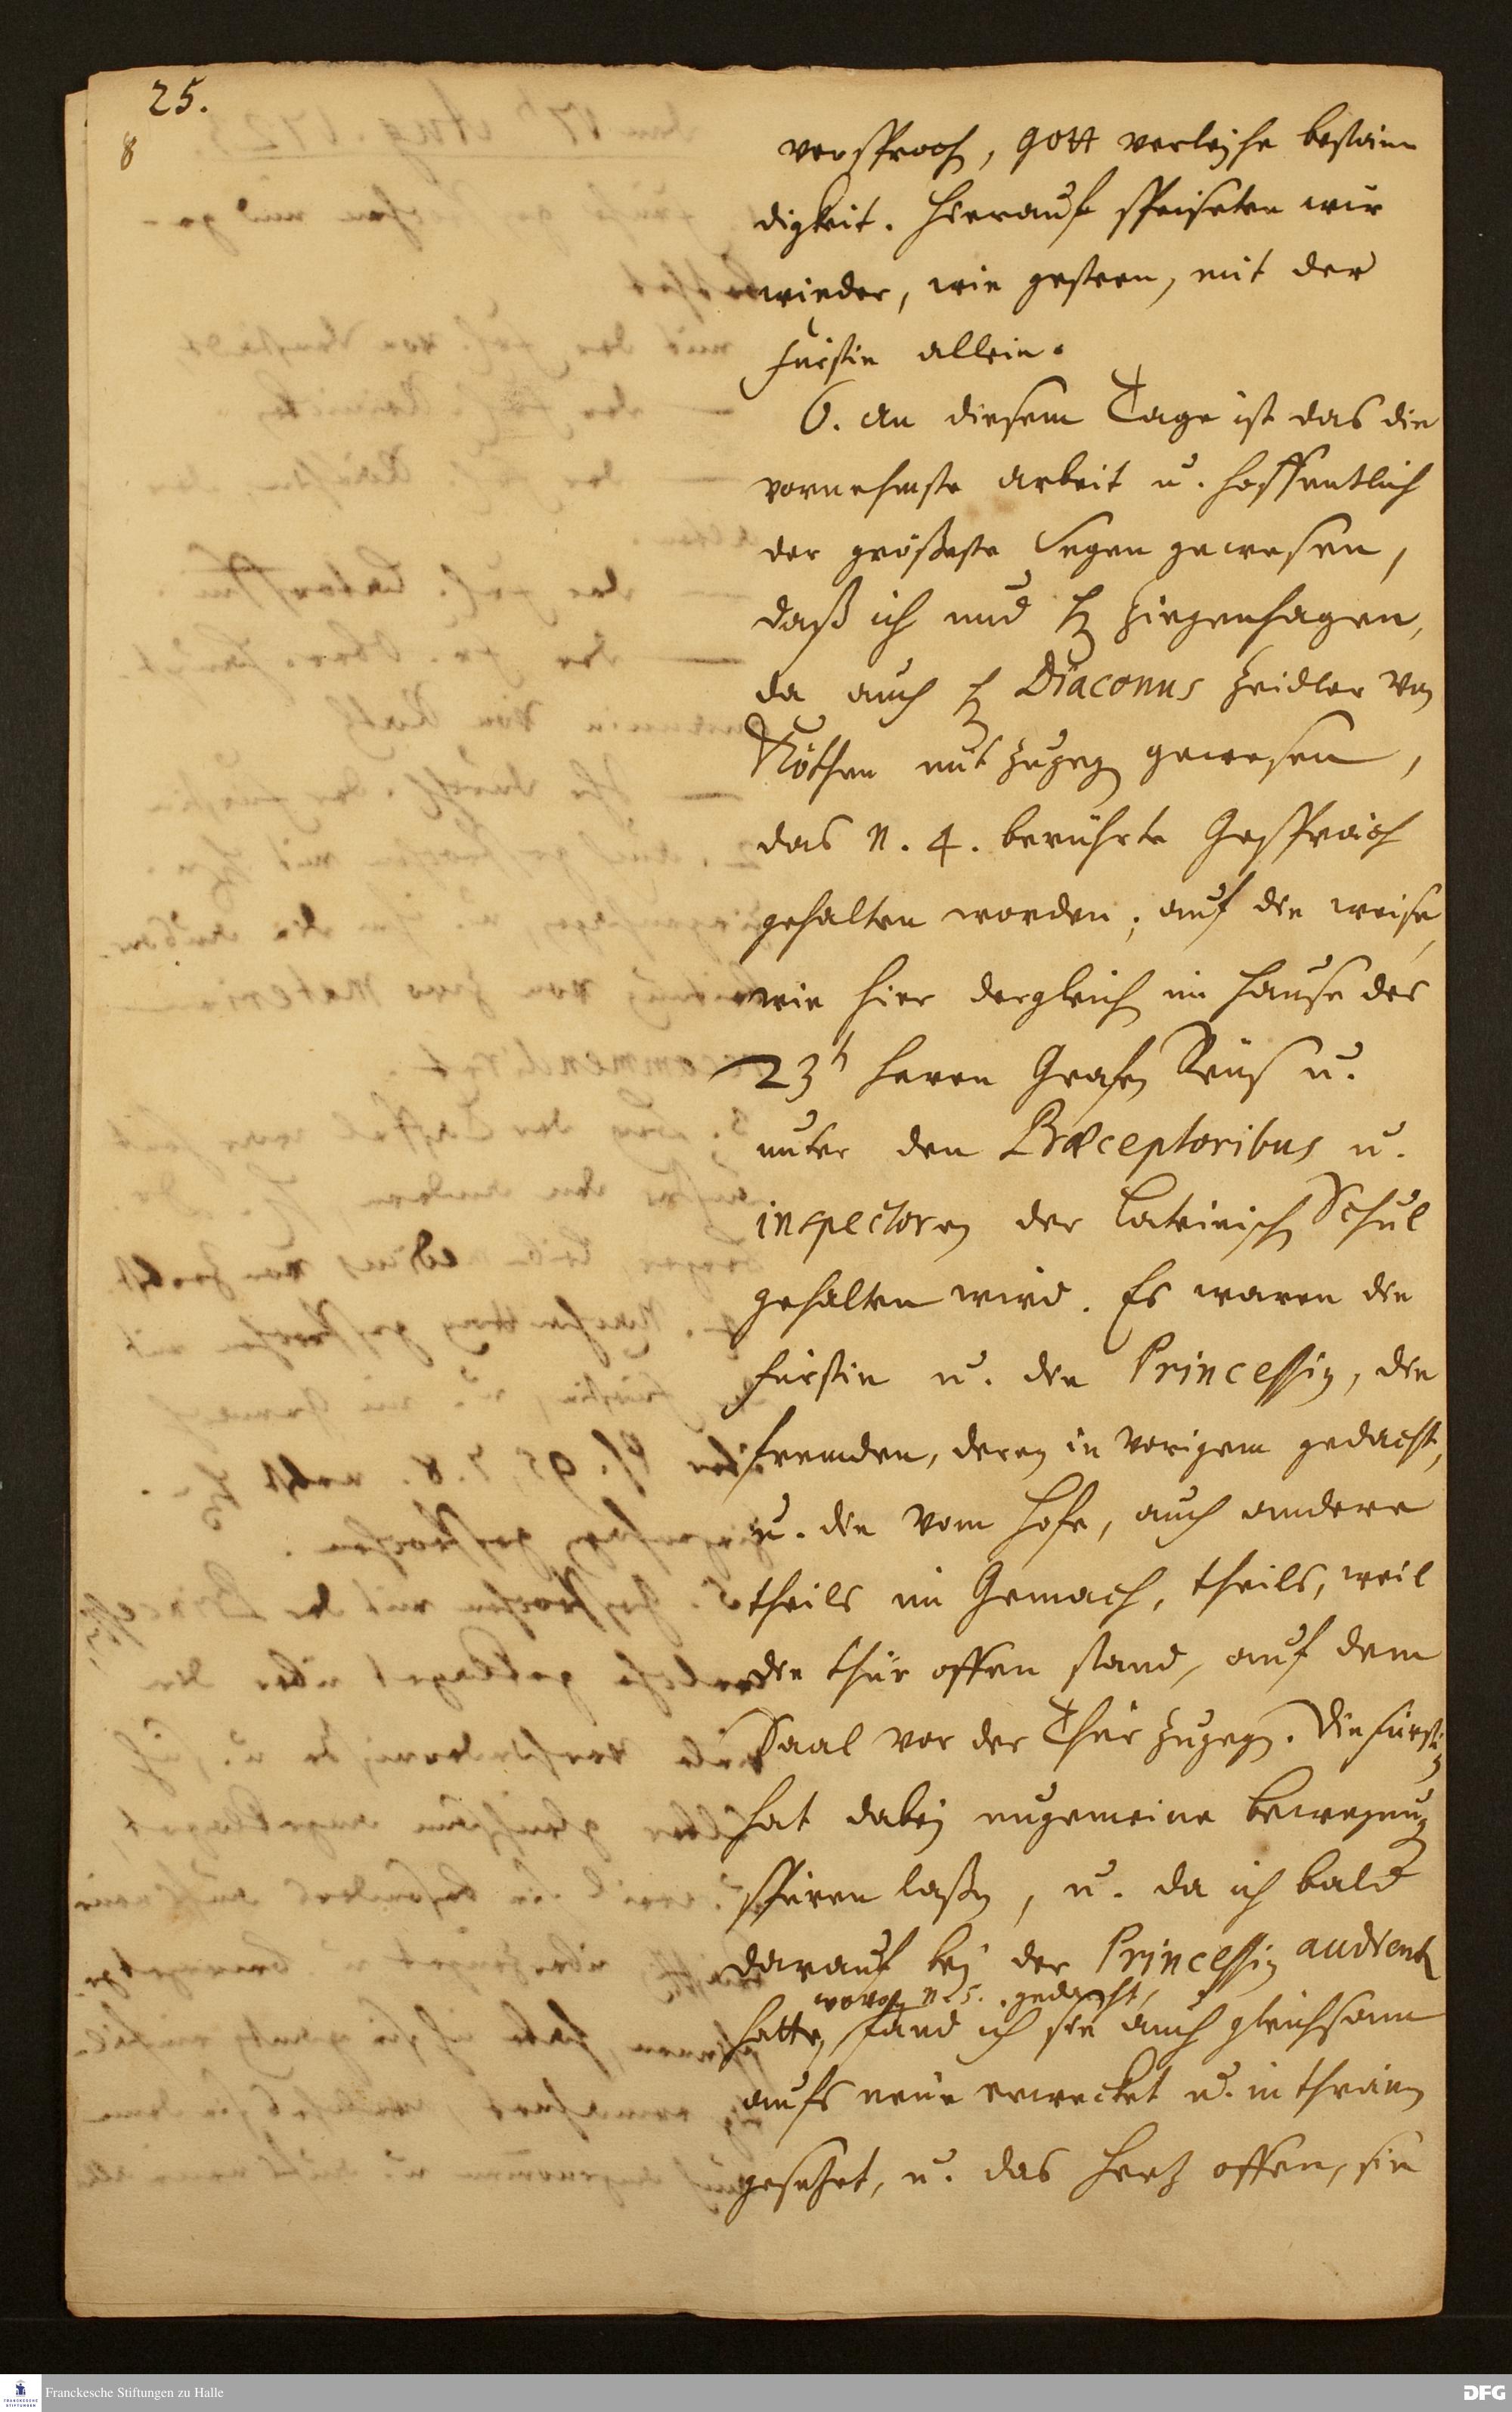 25.
8
versprach, Gott verleyhe bestän
digkeit. Hierauf speiseten wir
wieder, wie gestern, mit der
Fürstin allein.
6. An diesem Tage ist das die
vornehmste arbeit u. hoffentlich
der größeste Segen gewesen,
daß ich und H Ziegenhagen,
da auch H Diaconus Zeidler von
Köthen mit zugegen gewesen,
das n. 4. berührte Gespräch
gehalten worden; auf die weise,
wie hier dergleich im Hause des
23ten Herrn Grafen Reuß u.
unter den Præceptoribus u.
inspectoren der Lateinisch Schul
gehalten wird. Es waren die
Fürstin u. die Princeßin, die
fremden, deren in vorigem gedacht,
u. die vom Hofe, auch andere
theils im Gemach, theils, weil
die thür offen stand, auf dem
Saal vor der Thür zugegen. Die Fürstin
hat dabey ungemeine bewegung
spüren laßen, u. da ich bald
darauf bey der Princeßin audientz
wovon n. 5. gedacht,
hatte, fand ich sie auch gleichsam
aufs neue erwecket u. in thränen
gesetzet, u. das Hertz offen, sie
Franckesche Stiftungen zu Halle
DFG